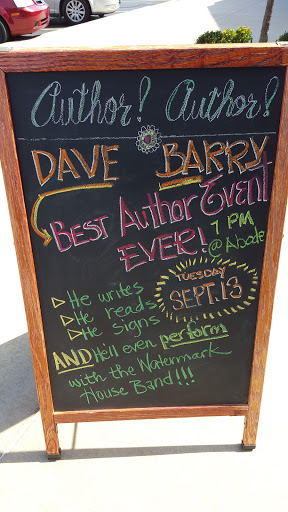 Author! Author!
DAVE BARRY
BEST Author Event
EVER!
7 PM
@ Abode
TUESDAY
SEPT. 13
▷He writes
▷He reads
▷He signs
AND He'll even perform
with the Watermark
House Band!!!